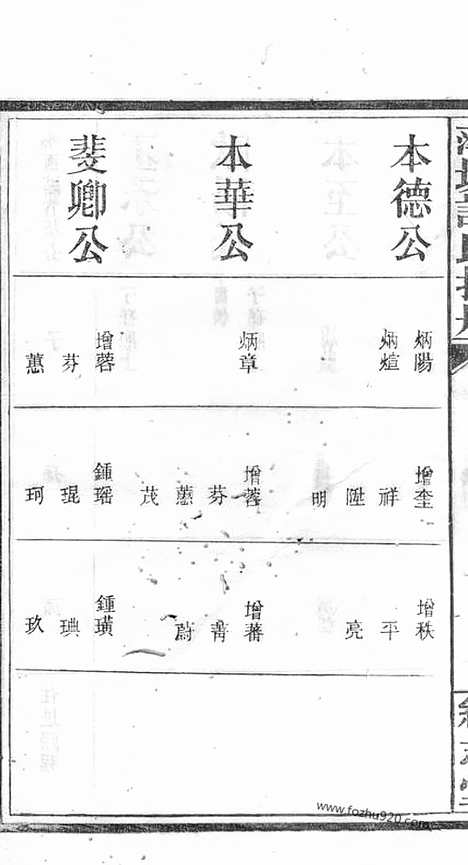 本德公
本華公
斐卿公
炳陽
炳煊
炳章
增蓉
芬
蕙
增奎
祥
陞
明
增蓉
芬
蕙
茂
鍾瑤
琨
珂
增秩
平
亮
增蕃
菁
蔚
鍾璜
琠
玖
www.fozhu920.com